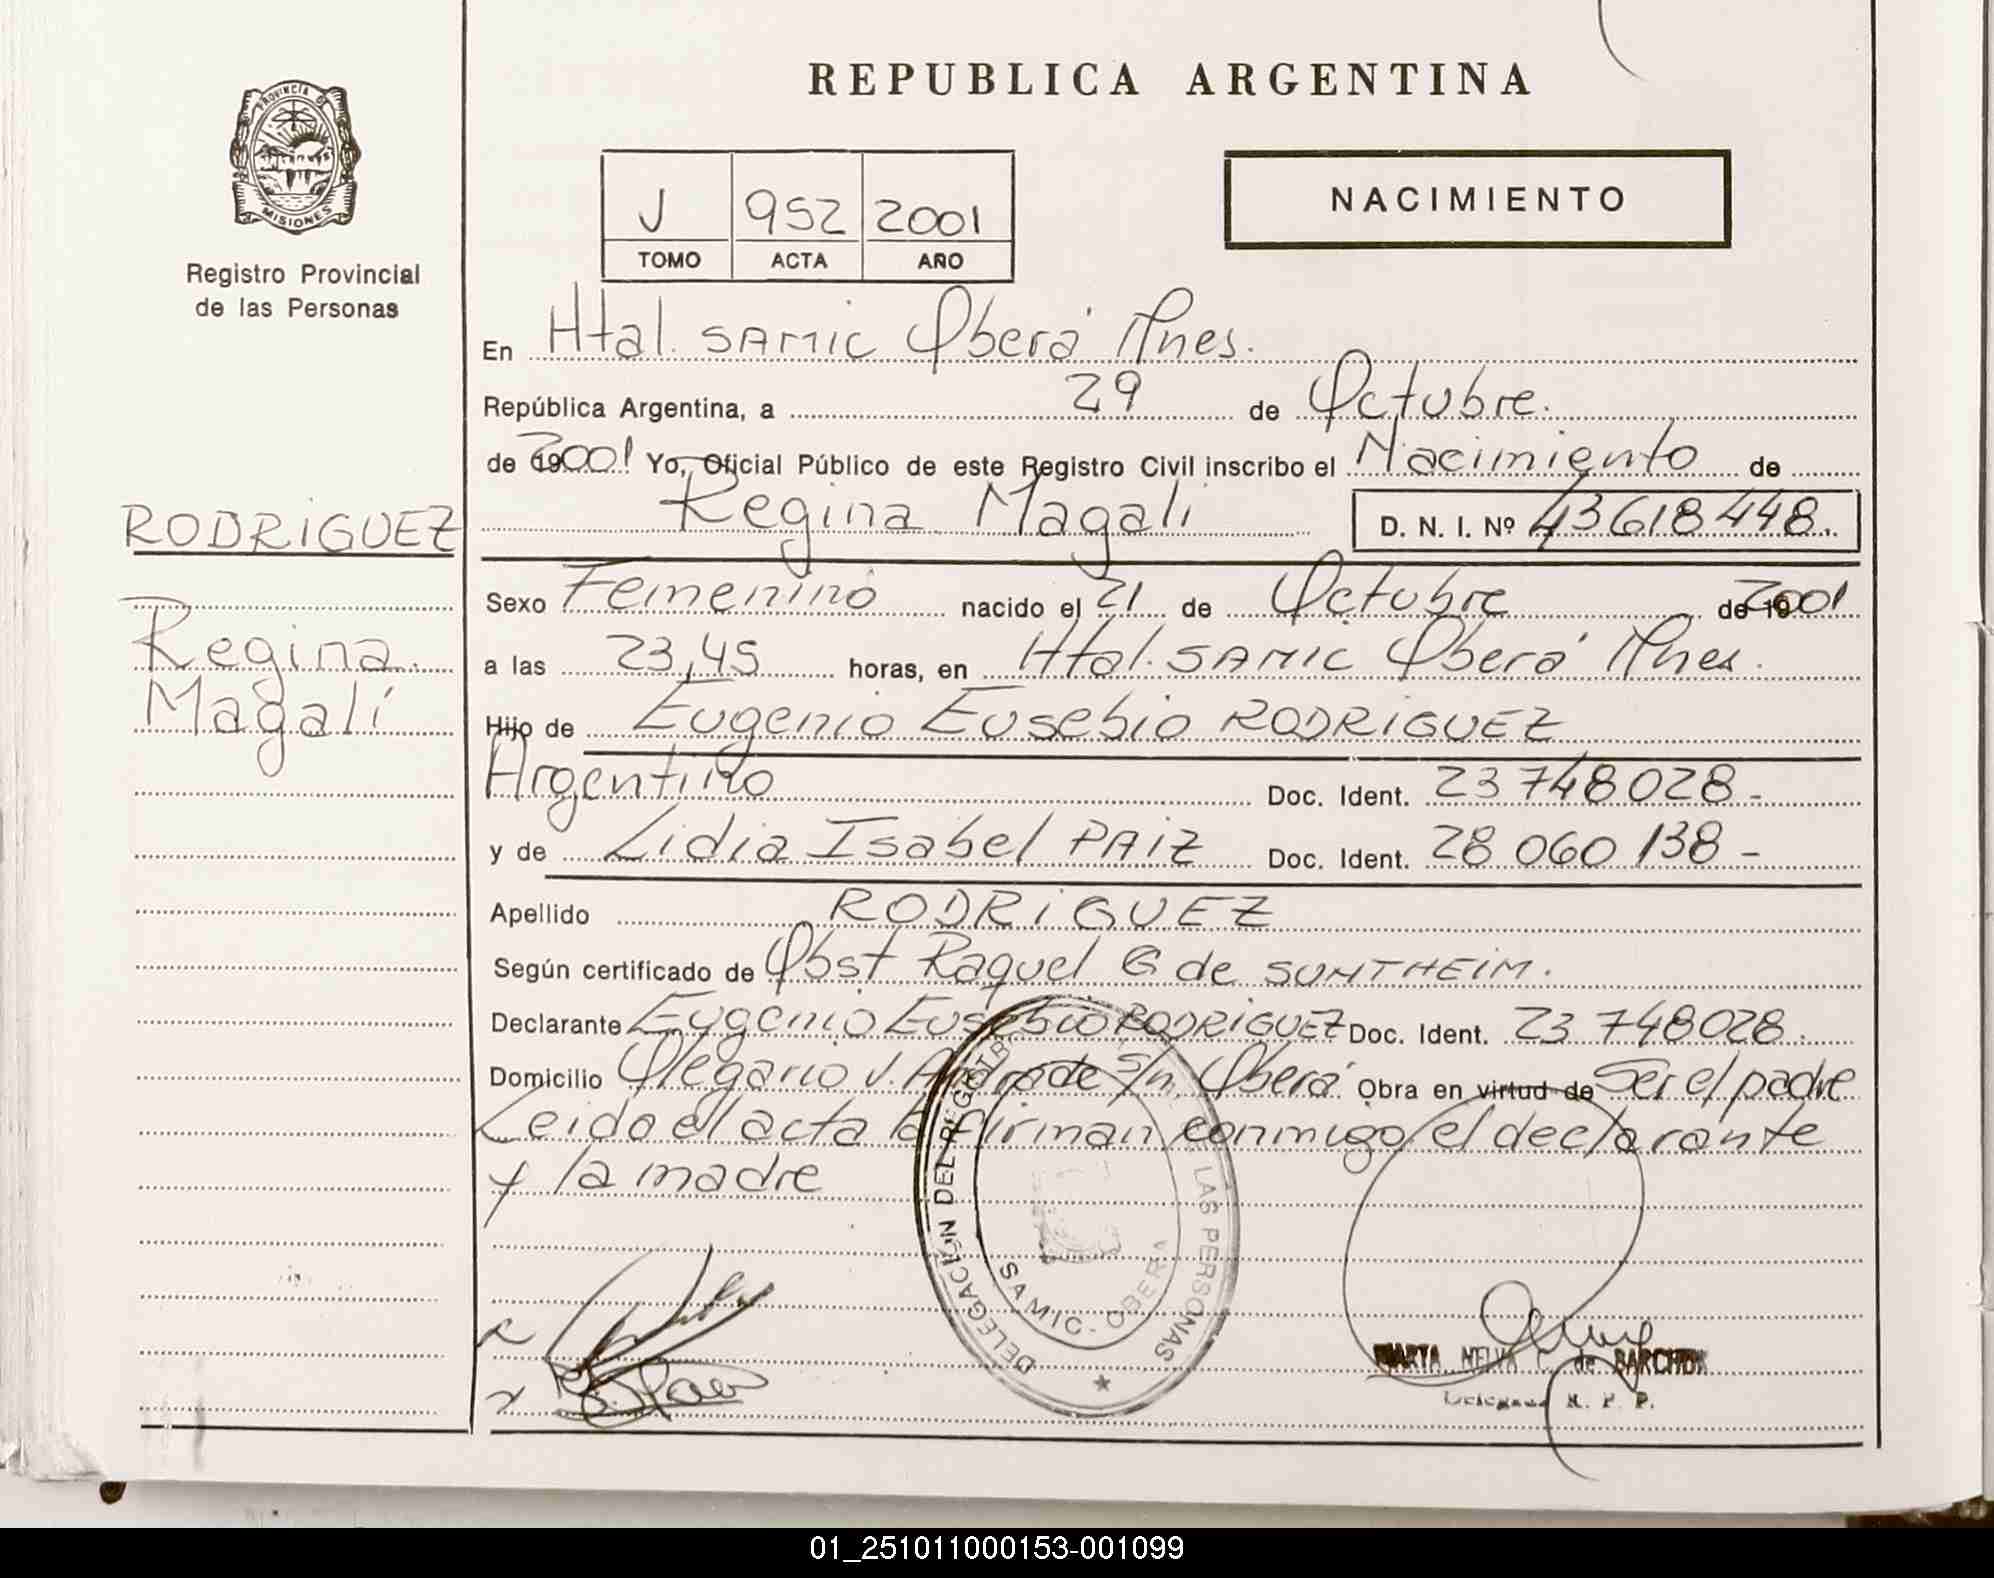 REPUBLICA ARGENTINA
PROVINCIA DE
MISIONES
Registro Provincial
de las Personas
J 952 2001
TOMO ACTA AÑO
NACIMIENTO
En Htal. SAMIC Oberá Mnes.
República Argentina, a 29 de Octubre.
de 2001 Yo, Oficial Público de este Registro Civil inscribo el Nacimiento de
RODRIGUEZ
Regina Magalí
Regina Magali D. N. I. Nº 43618448.
Sexo Femenino nacido el 21 de Octubre de 2001
a las 23,45 horas, en Htal. SAMIC Oberá Mnes.
Hijo de Eugenio Eusebio RODRIGUEZ
Argentino Doc. Ident. 23748028-
y de Lidia Isabel PAIZ Doc. Ident. 28 060 138-
Apellido RODRIGUEZ
Según certificado de Obst Raquel G de SUMTHEIM.
Declarante Eugenio Eusebio RODRIGUEZ Doc. Ident. 23 748028.
Domicilio Olegario V. Andrade s/n Oberá Obra en virtud de Ser el padre
Leido el acta la firman conmigo el declarante
y la madre
DELEGACIÓN DEL REGISTRO DE LAS PERSONAS
SAMIC - OBERA
MARTA de
Delegada R. P. P.
01_251011000153-001099